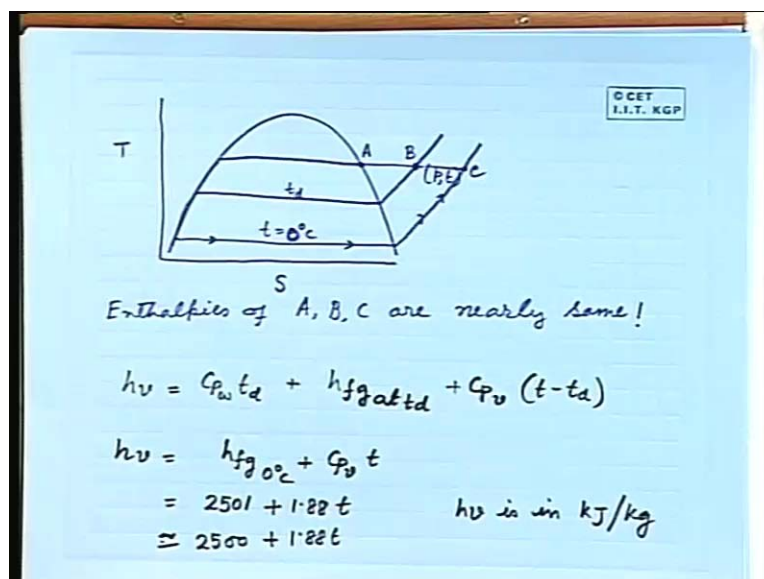 © CET
I.I.T. KGP
T
A B C
(P,t)
td
t=0°C
S
Enthalpies of A, B, C are nearly same!
hv = Cpw td + hfg at td + Cpv (t-td)
hv = hfg 0°C + Cpv t
= 2501 + 1.88 t hv is in kJ/kg
≃ 2500 + 1.88t